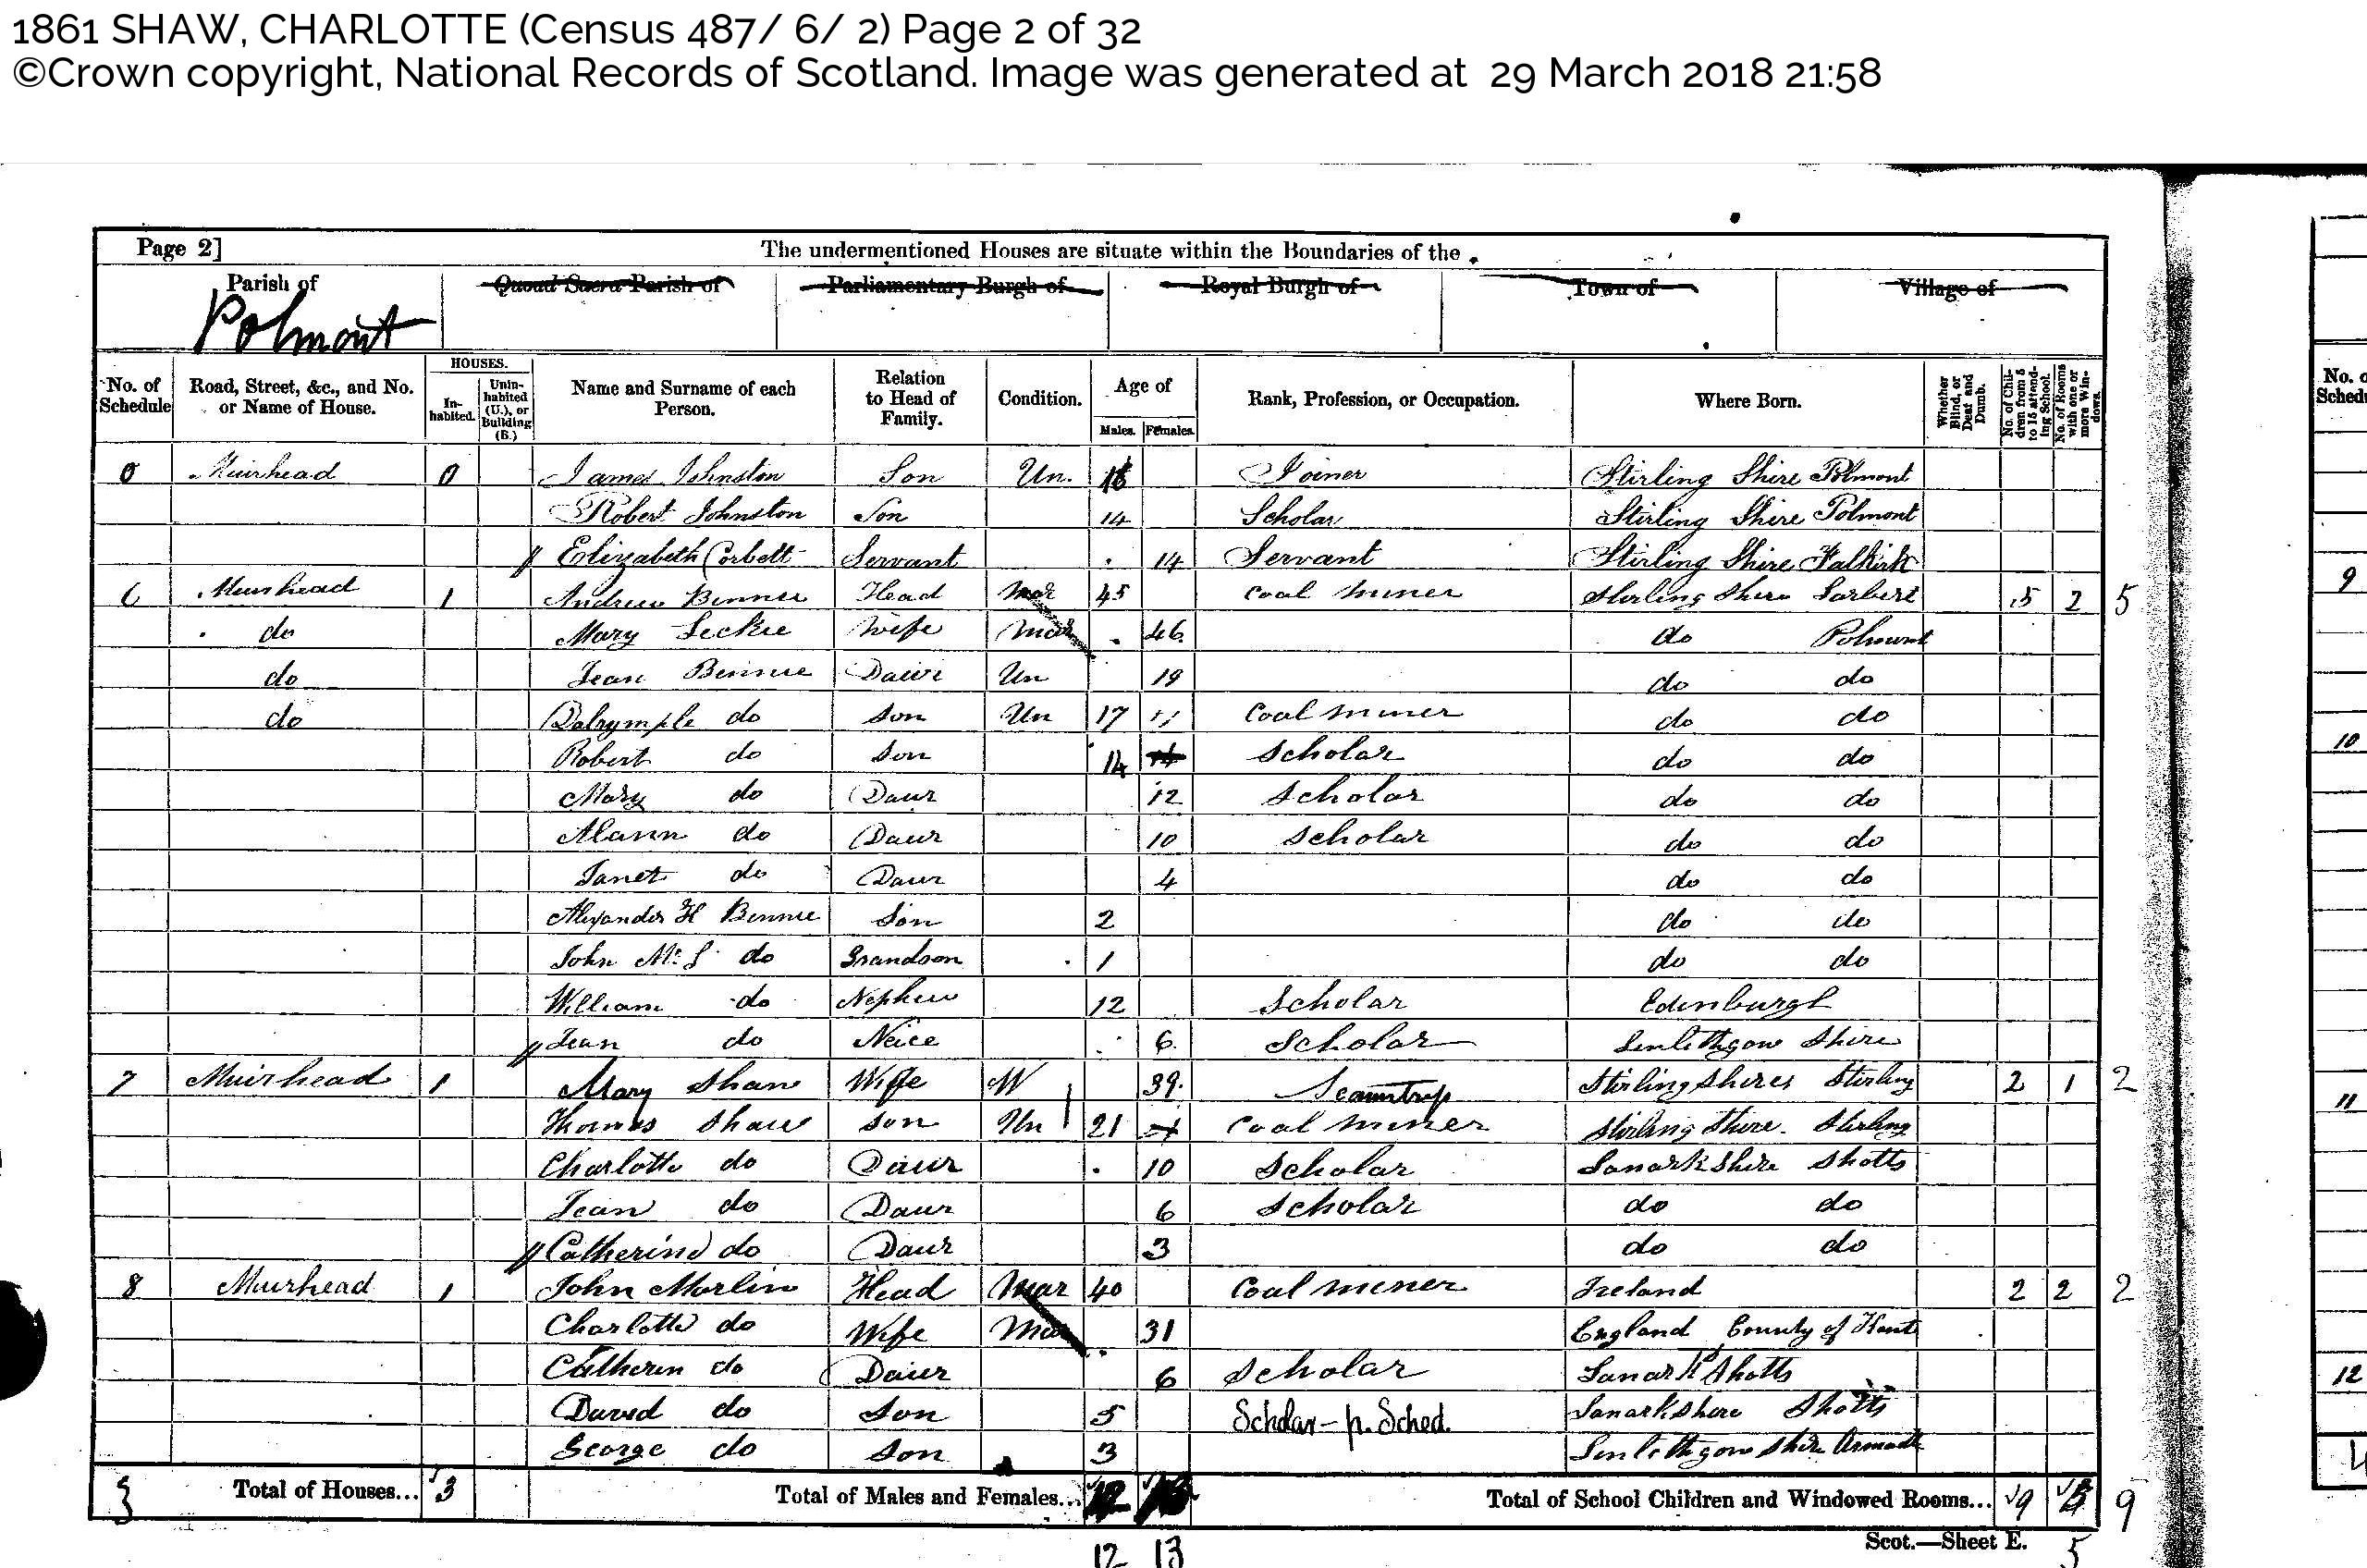 1861 SHAW, CHARLOTTE (Census 487/ 6/ 2) Page 2 of 32
©Crown copyright, National Records of Scotland. Image was generated at 29 March 2018 21:58
Page 2] The undermentioned Houses are situate within the Boundaries of the
Parish of Quoad Sacra Parish of Parliamentary Burgh of Royal Burgh of Town of Village of
Polmont
No. of Schedule Road, Street, &c., and No. or Name of House. HOUSES. In-habited. Unin-habited (U.), or Building (B.) Name and Surname of each Person. Relation to Head of Family. Condition. Age of Males. Females. Rank, Profession, or Occupation. Where Born. Whether Blind, or Deaf and Dumb. No. of Chil-dren from 5 to 15 attend-ing School. No. of Rooms with one or more Win-dows.
0 Muirhead 0 James Johnston Son Un. 16 Joiner Stirling Shire Polmont
Robert Johnston Son 14 Scholar Stirling Shire Polmont
Elizabeth Corbett Servant 14 Servant Stirling Shire Falkirk
6 Muirhead 1 Andrew Binnie Head Mar 45 Coal Miner Stirling Shire Larbert 5 2 5
do Mary Leckie Wife Mar 46 do Polmont
do Jean Binnie Daur Un 19 do do
do Dalrymple do Son Un 17 Coal Miner do do
Robert do Son 14 Scholar do do
Mary do Daur 12 Scholar do do
do Daur 10 Scholar do do
Janet do Daur 4 do do
Alexander H Binnie Son 2 do do
John do Grandson 1 do do
William do Nephew 12 Scholar Edinburgh
Jean do Neice 6 Scholar Linlithgow Shire
7 Muirhead 1 Mary Shaw Wife W 39 Stirlingshire Stirling 2 1 2
Thomas Shaw Son Un 21 Coal Miner Stirling Shire Stirling
Charlotte do Daur 10 Scholar Lanarkshire Shotts
Jean do Daur 6 Scholar do do
Catherine do Daur 3 do do
8 Muirhead 1 John Morlin Head Mar 40 Coal Miner Ireland 2 2 2
Charlotte do Wife Mar 31 England County of
Catherin do Daur 6 Scholar Lanark Shotts
David do Son 5 Scholar - p. Sched. Lanarkshire Shotts
George do Son 3 Linlithgow Shire
3 Total of Houses... 3 Total of Males and Females... 12 13 Total of School Children and Windowed Rooms... 9 9
Scot.—Sheet E.
12 13 5
No. o
Schedu
9
10
11
12